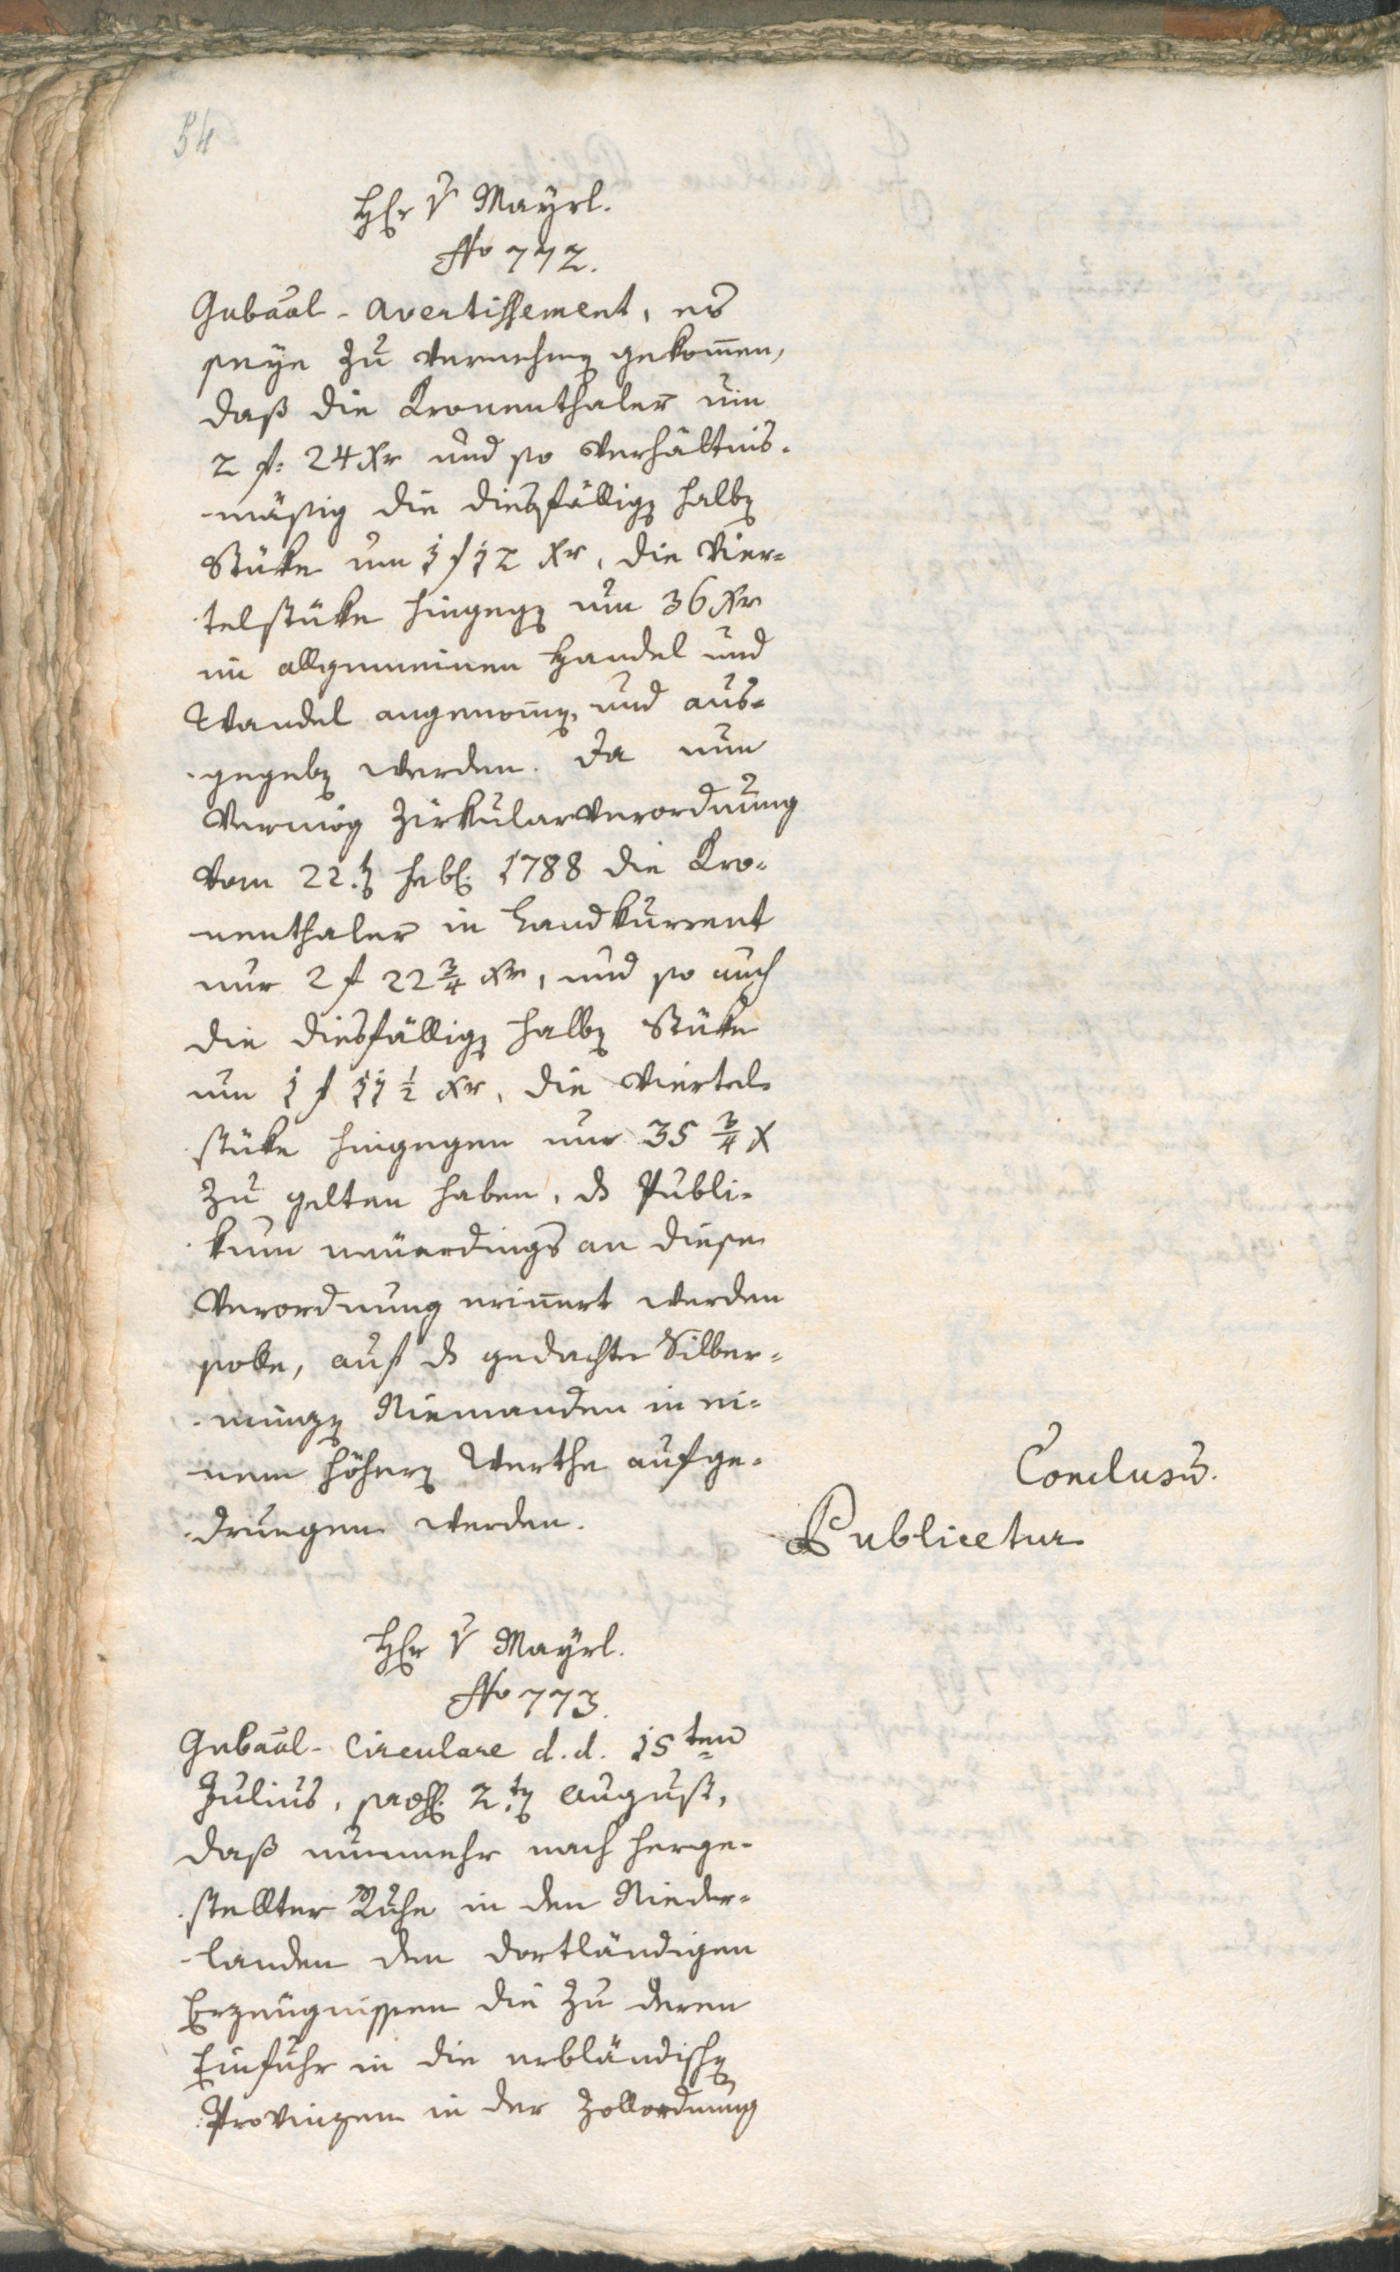 54
Hr v Mayrl.
No 772.
Gubaal-Avertissement, es
seye zu vernehmen gekommen,
daß die Kronenthaler um
2 f: 24 Xr und so verhältnis-
-mäsig die diesfällige halbe
Stüke um 1 f 12 Xr, die Vier-
telstüke hingegen um 36 Xr
im allgemeinen Handel und
Wandel angenommen, und aus-
-gegeben werden. Da nun
vermög Zirkularverordnung
vom 22.ten Feb. 1788 die Kro-
nenthaler in Landkurrent
nur 2 f 22 3/4 Xr, und so auch
die diesfällige halbe Stüke
um 1 f 11 1/2 Xr, die Viertel-
stüke hingegen nur 35 3/4 X
zu gelten haben, ds Publi-
kum neüerdings an diese
Verordnung erinnert werden
solle, auf ds gedachte Silber-
-münzen Niemanden in ei-
nem höhern Werthe aufge-
-drungen werden.
Conclusum.
Publicetur
Hr v Mayrl.
No 773.
Gubaal-Circulare d. d. 15ten
Julius, praes. 2.ten August,
daß nunmehr nach herge-
stellter Ruhe in den Nieder-
-landen den dortländigen
Erzeügnissen die zu deren
Einfuhr in die erbländischen
Provinzen in der Zollordnung